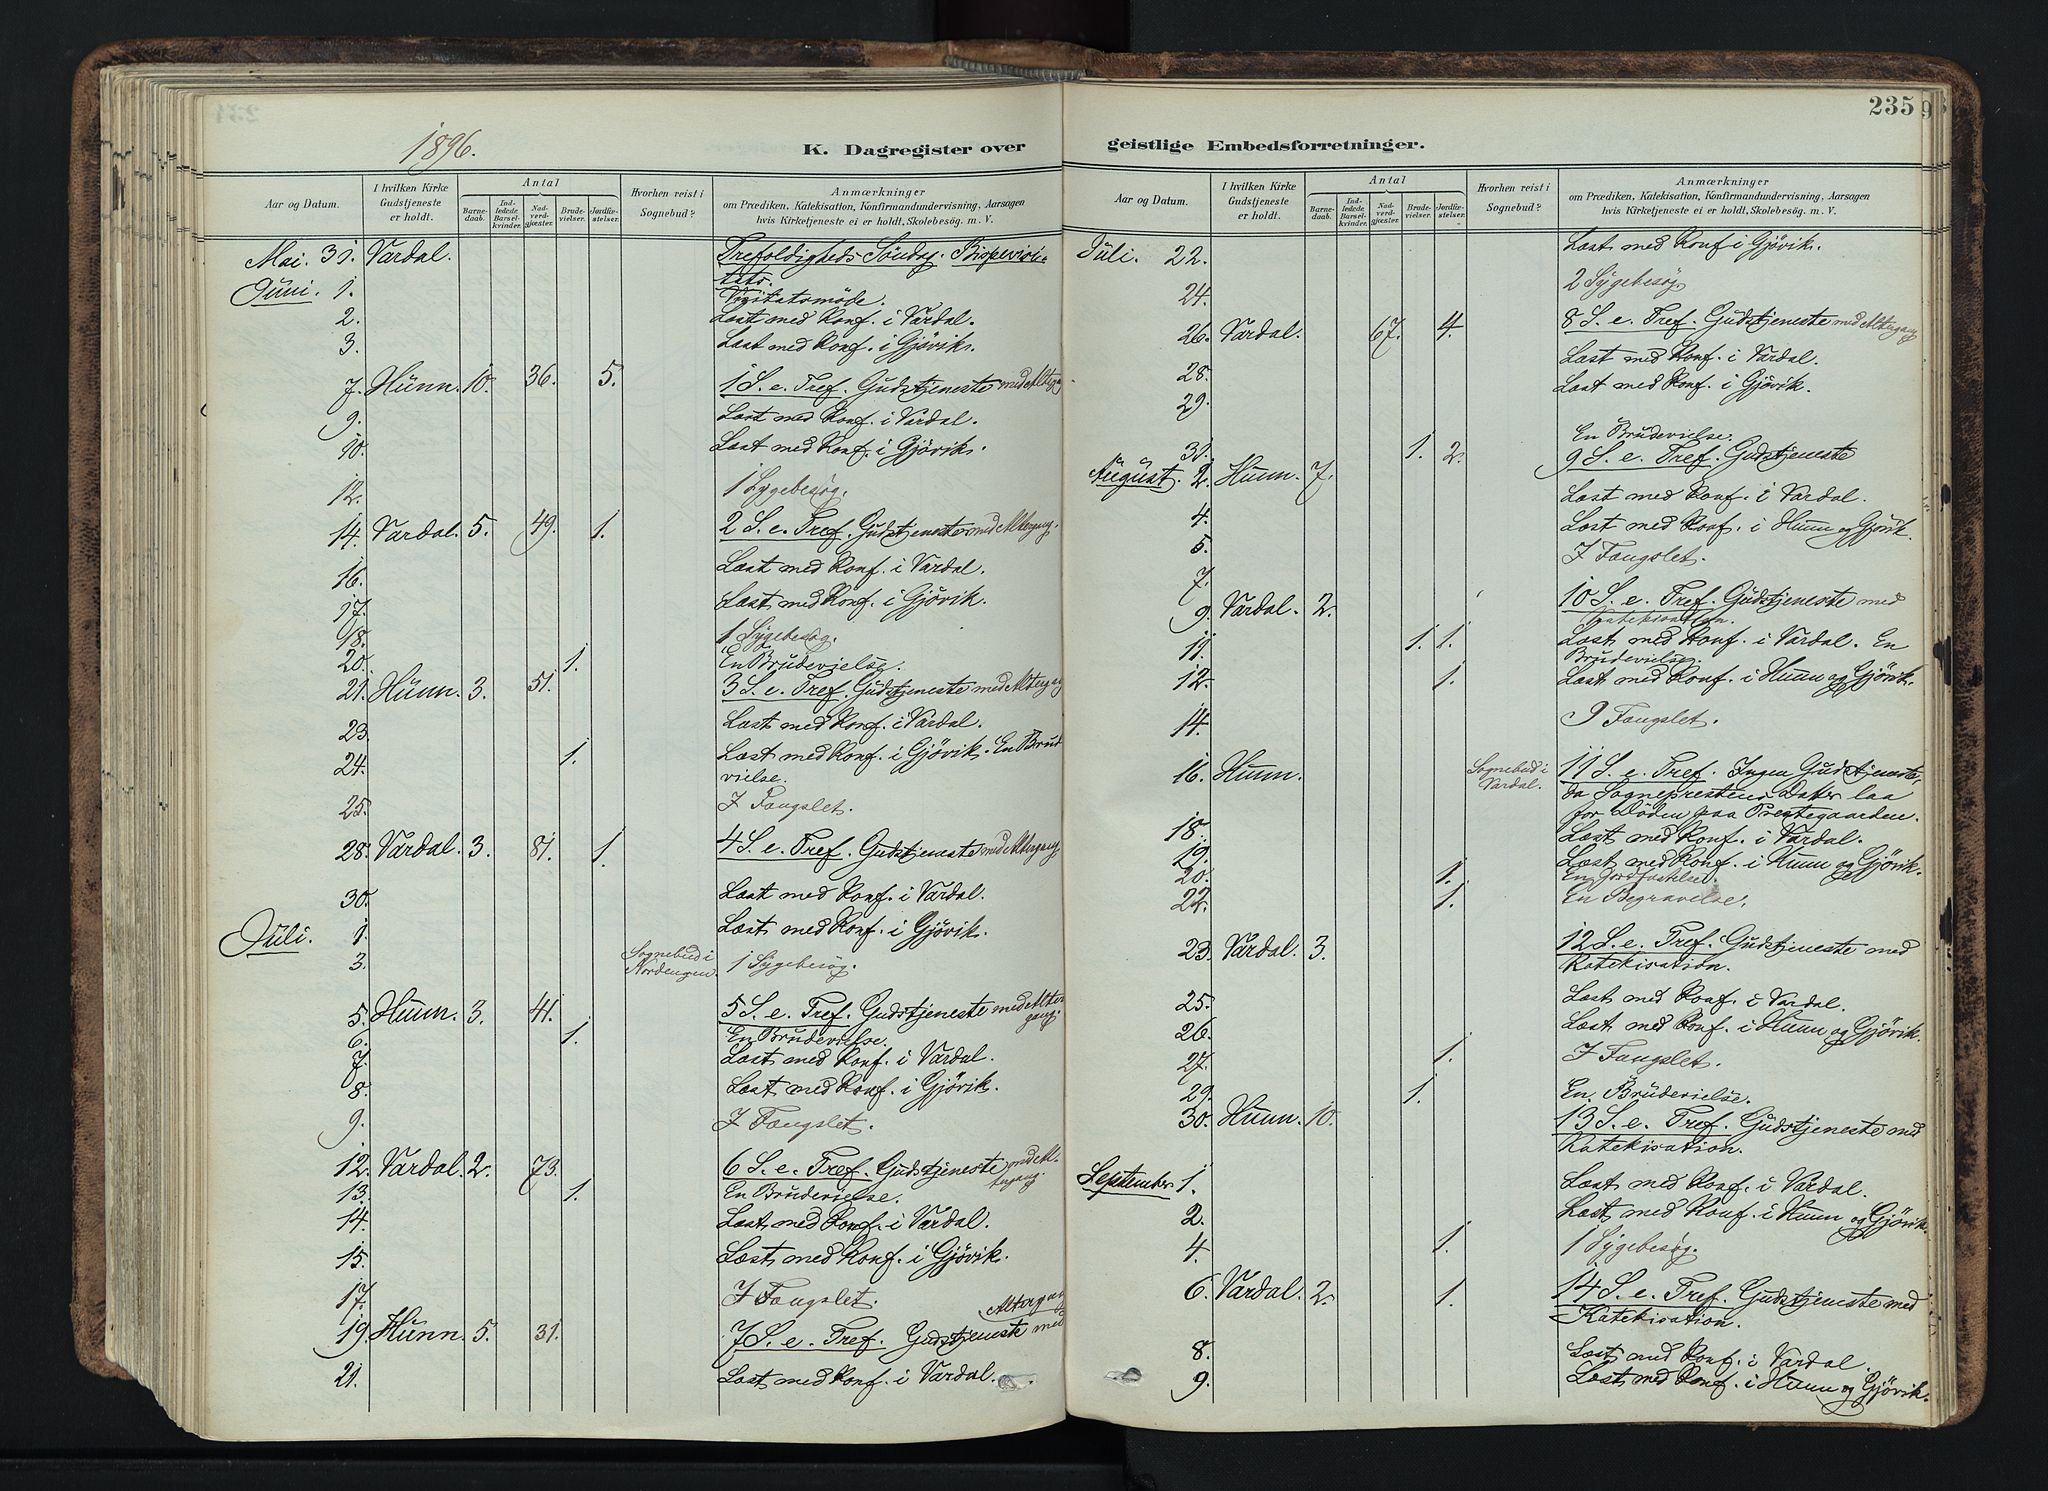 235
1896.
K. Dagregister over
geistlige Embedsforretninger.
Aar og Datum.
I hvilken Kirke Gudstjeneste er holdt.
Antal
Barnedaab.
Indledede Barselkvinder.
Nadverdgjæster.
Brudevielser.
Jordfæstelser.
Hvorhen reist i Sognebud?
Anmærkninger
om Prædiken, Katekisation, Konfirmandundervisning, Aarsogen
hvis Kirketjeneste ei er holdt, Skolebesög. m. V.
Mai. 31. Vardal. Trefoldigheds Söndag. Bispevisi-
tats.
Juni. 1. Visitatsmöde.
2. Læst med Konf. i Vardal.
3. Læst med Konf. i Gjövik.
7. Hunn. 10. 36. 5. 1 S. e. Tref. Gudstjeneste med Altergang
9. Læst med Konf. i Vardal.
10. Læst med Konf. i Gjövik.
12. 1 Sygebesög.
14. Vardal. 5. 49. 1. 2 S. e. Tref. Gudstjeneste med Altergang.
16. Læst med Konf. i Vardal.
17. Læst med Konf. i Gjövik.
18. 1 Sygebesög.
20. 1. En Brudevielse.
21. Hunn. 3. 51. 3 S. e. Tref. Gudstjeneste med Altergang
23. Læst med Konf. i Vardal.
24. 1. Læst med Konf. i Gjövik. En Brud
vielse.
25. I Fængslet.
28. Vardal. 3. 81. 1. 4 S. e. Tref. Gudstjeneste med Altergang
30. Læst med Konf. i Vardal.
Juli. 1. Læst med Konf. i Gjövik.
3. Sognebud i Nordengen. 1 Sygebesög.
5. Hunn. 3. 41. 5 S. e. Tref. Gudstjeneste med Alter
gang.
6. 1. En Brudevielse.
7. Læst med Konf. i Vardal.
8. Læst med Konf. i Gjövik.
9. I Fængslet.
12. Vardal. 2. 73. 6 S. e. Tref. Gudstjeneste med Al-
tergang
13. 1. En Brudevielse.
14. Læst med Konf. i Vardal.
15. Læst med Konf. i Gjövik.
17. I Fængslet.
Altergang
19. Hunn. 5. 31. 7 S. e. Tref. Gudstjeneste med
21. Læst med Konf. i Vardal.
Aar og Datum.
I hvilken Kirke Gudstjeneste er holdt.
Antal
Barnedaab.
Indledede Barselkvinder.
Nadverdgjæster.
Brudevielser.
Jordfæstelser.
Hvorhen reist i Sognebud?
Anmærkninger
om Prædiken, Katekisation, Konfirmandundervisning, Aarsogen
hvis Kirketjeneste ei er holdt, Skolebesög. m. V.
Juli. 22. Læst med Konf i Gjövik.
24. 2 Sygebesög
26. Vardal. 67. 4. 8 S. e. Tref. Gudstjeneste med Altergang
28. Læst med Konf. i Vardal.
29. Læst med Konf. i Gjövik.
31. 1. 2. En Brudevielse.
August. 2. Hunn. 7. 9 S. e. Tref. Gudstjeneste
4. Læst med Konf. i Vardal.
5. Læst med Konf. i Hunn og Gjövik.
7. I Fængslet.
9. Vardal. 2. 10 S. e. Tref. Gudstjeneste med
Katekisation.
11. 1. 1. Læst med Konf. i Vardal. En
Brudevielse.
12. 1. Læst med Konf. i Hunn og Gjövik.
14. I Fængslet.
16. Hunn. Sognebud i Vardal. 11 S. e. Tref. Ingen Gudstjeneste,
da Sogneprestens Datter laa
for Döden paa Prestegaarden.
18. Læst med Konf. i Vardal.
19. Læst med Konf. i Hunn og Gjövik.
20. 1. En Jordfæstelse.
22. 1. En Begravelse.
23. Vardal. 3. 12 S. e. Tref. Gudstjeneste med
Katekisation.
25. Læst med Konf. i Vardal.
26. Læst med Konf. i Hunn og Gjövik.
27. 1. I Fængslet.
29. 1. En Brudevielse.
30. Hunn. 10. 13 S. e. Tref. Gudstjeneste med
Katekisation.
September 1. Læst med Konf. i Vardal.
2. Læst med Konf. i Hunn og Gjövik.
4. 1. 1 Sygebesög.
6. Vardal. 2. 1. 14 S. e. Tref. Gudstjeneste med
Katekisation.
8. Læst med Konf. i Vardal.
9. Læst med Konf. i Hunn og Gjövik.